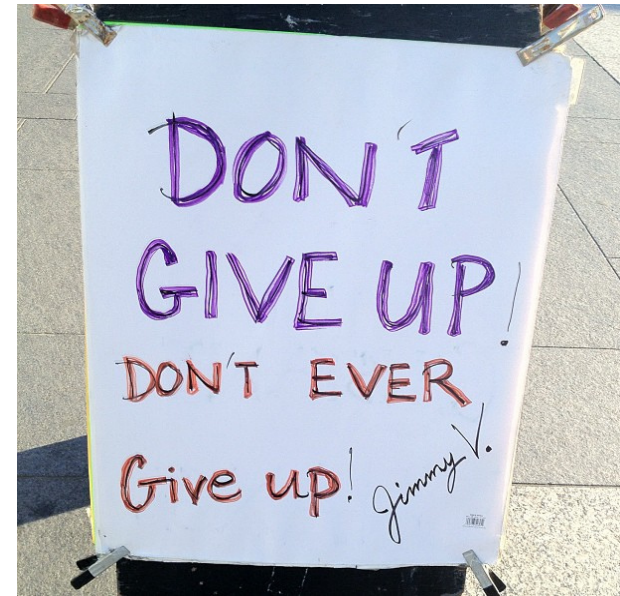 DON'T
GIVE UP!
DON'T EVER
Give up!
Jimmy V.